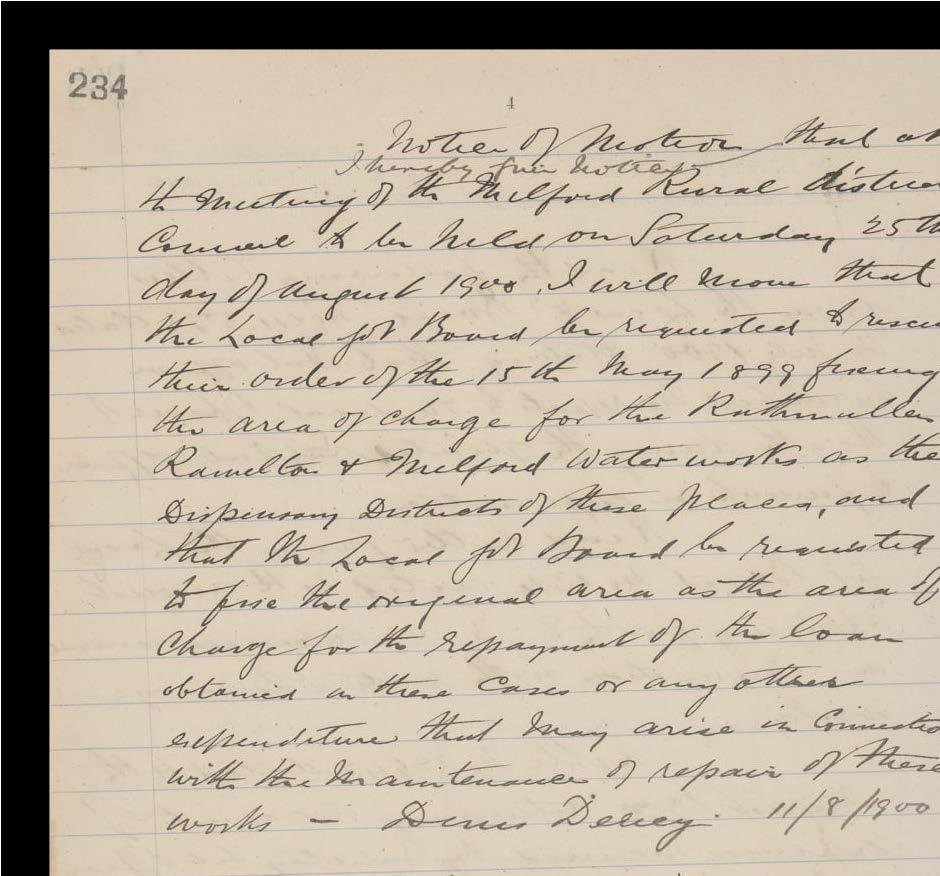 234
4
Notice of Motion that at
I hereby give Notice
the Meeting of the Milford Rural District
Council to be held on Saturday 25th
day of august 1900, I will move that
the Local Govt Board be requested to resci
their order of the 15th May 1899 fixing
the area of charge for the Rathmullen
Ramelton & Milford Water works as the
Dispensary Districts of these places, and
that the Local Govt Board be requested
to fixe the original area as the area of
Charge for the repayment of the loan
obtained in these Cases or any other
expenditure that may arise in Connectio
with the Maintenance of repair of these
works — Denis 11/8/1900